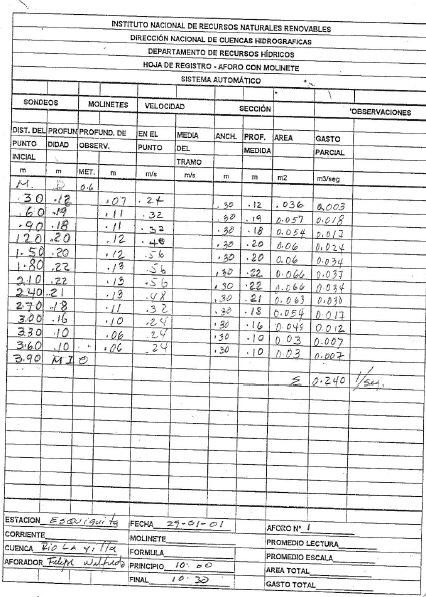 INSTITUTO NACIONAL DE RECURSOS NATURALES RENOVABLES
DIRECCIÓN NACIONAL DE CUENCAS HIDROGRAFICAS
DEPARTAMENTO DE RECURSOS HÍDRICOS
HOJA DE REGISTRO - AFORO CON MOLINETE
SISTEMA AUTOMÁTICO
SONDEOS MOLINETES VELOCIDAD SECCIÓN OBSERVACIONES
DIST. DEL PROFUN PROFUND. DE EN EL MEDIA ANCH. PROF. AREA GASTO
PUNTO DIDAD OBSERV. PUNTO DEL MEDIDA PARCIAL
INICIAL TRAMO
m m MET. m m/s m/s m m m2 m3/seg
M. D 0.6
.30 .12 .07 .24 .30 .12 .036 0.003
.60 .19 .11 .32 .30 .19 0.057 0.018
.90 .18 .11 .32 .30 .18 0.054 0.017
120 .20 .12 .48 .30 .20 0.06 0.024
1.50 .20 .12 .56 .30 .20 0.06 0.034
1.80 .22 .13 .56 .30 .22 0.066 0.037
210 .22 .13 .56 .30 .22 .066 0.034
240 .21 .13 .48 .30 .21 0.063 0.030
270 .18 .11 .32 .30 .18 0.054 0.017
3.00 .16 .10 .24 .30 .16 0.048 0.012
330 .10 .06 .24 .30 .10 0.03 0.007
3.60 .10 .06 .24 .30 .10 0.03 0.007
3.90 M I 0
Σ 0.240 /seg.
ESTACION Esquiguita FECHA 29-01-01 AFORO Nº 1
CORRIENTE MOLINETE PROMEDIO LECTURA
CUENCA Rio La Villa FORMULA PROMEDIO ESCALA
AFORADOR Felipe Wilfredo PRINCIPIO 10:00 AREA TOTAL
FINAL 10:30 GASTO TOTAL